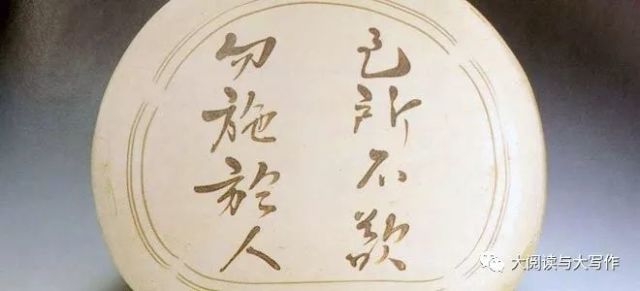 己所不欲
勿施於人
大阅读与大写作